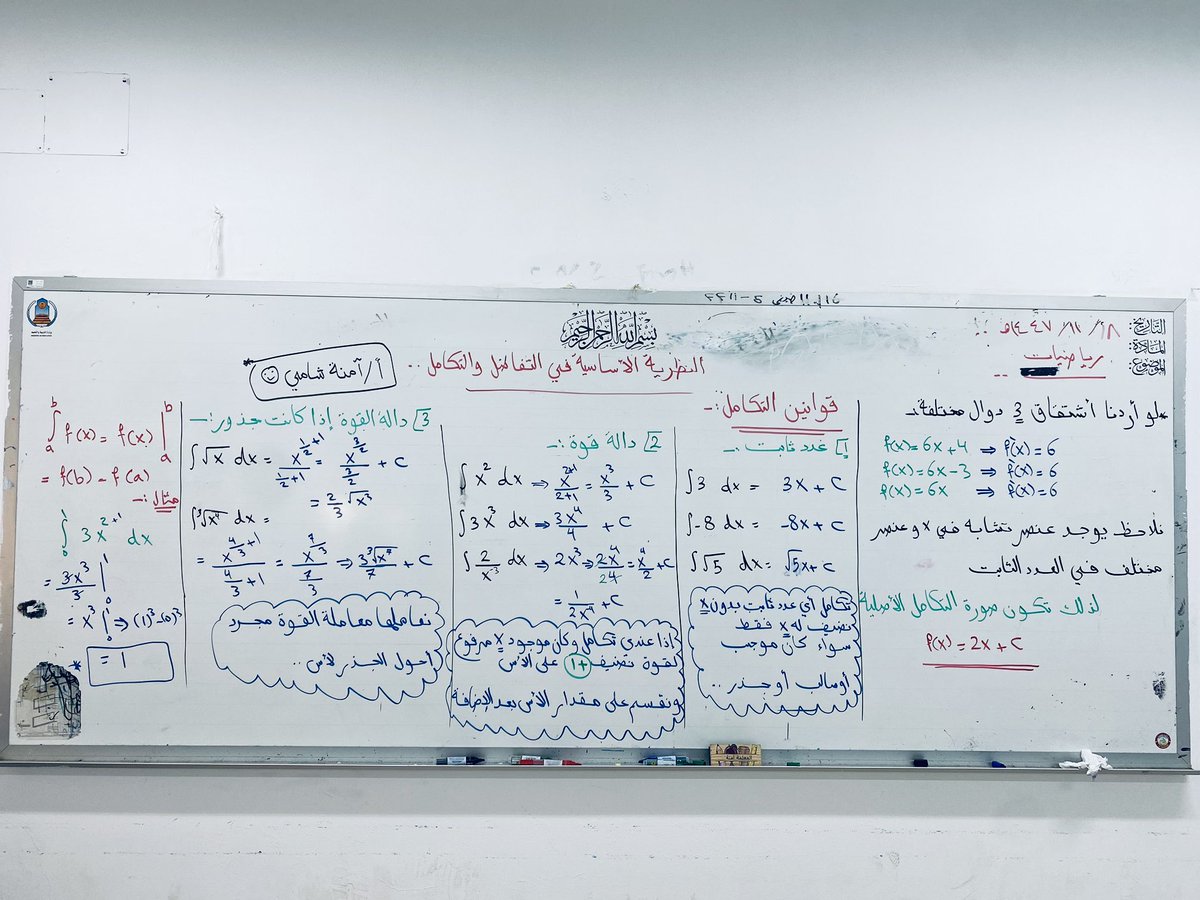 بسم الله الرحمن الرحيم
التاريخ: ١٨/ ١١/ ١٤٤٧هـ
المادة: رياضيات
الموضوع:
النظرية الأساسية في التفاضل والتكامل ..
أ/آمنة شامي
*لو أردنا أشتقاق 3 دوال مختلفة..
f(x) = 6x + 4 ⇒ f`(x) = 6
f(x) = 6x - 3 ⇒ f`(x) = 6
f(x) = 6x ⇒ f`(x) = 6
نلاحظ يوجد عنصر تشابة في x وعنصر
مختلف في العدد الثابت
لذلك تكون صورة التكامل الأصلية
f(x) = 2x + C
قوانين التكامل:-
1] عدد ثابت:-
∫3 dx = 3x + C
∫-8 dx = -8x + C
∫√5 dx = √5x + C
تكامل أي عدد ثابت بدون x
نضيف له x فقط
سواء كان موجب
أوسالب أو جذر ..
2] دالة قوة:-
∫x² dx ⇒ x^(2+1)/(2+1) = x³/3 + C
∫3x³ dx ⇒ 3x⁴/4 + C
∫2/x⁻³ dx ⇒ 2x³ ⇒ 2x⁴/24 = x⁴/2 + C
= 1/2x⁴ + C
إذا عندي تكامل وكان موجود x مرفوع
لقوة نضيف +1 على الأس
ونقسم على مقدار الأس بعد الإضافة
3] دالة القوة إذا كانت جذور:-
∫√x dx = x^(1/2+1)/(1/2+1) = x^(3/2)/(3/2) + C
= 2/3 √x³
∫³√x⁴ dx =
= x^(4/3+1)/(4/3+1) = x^(7/3)/(7/3) ⇒ 3 ³√x⁷/7 + C
نعاملها معاملة القوة مجرد
أحول الجذر لأس ..
∫ₐᵇ f(x) = f(x)|ₐᵇ
= f(b) - f(a)
مثال:-
∫₀¹ 3x^(2+1) dx
= 3x³/3 |₀¹
= x³ |₀¹ ⇒ (1)³-(0)³
= 1